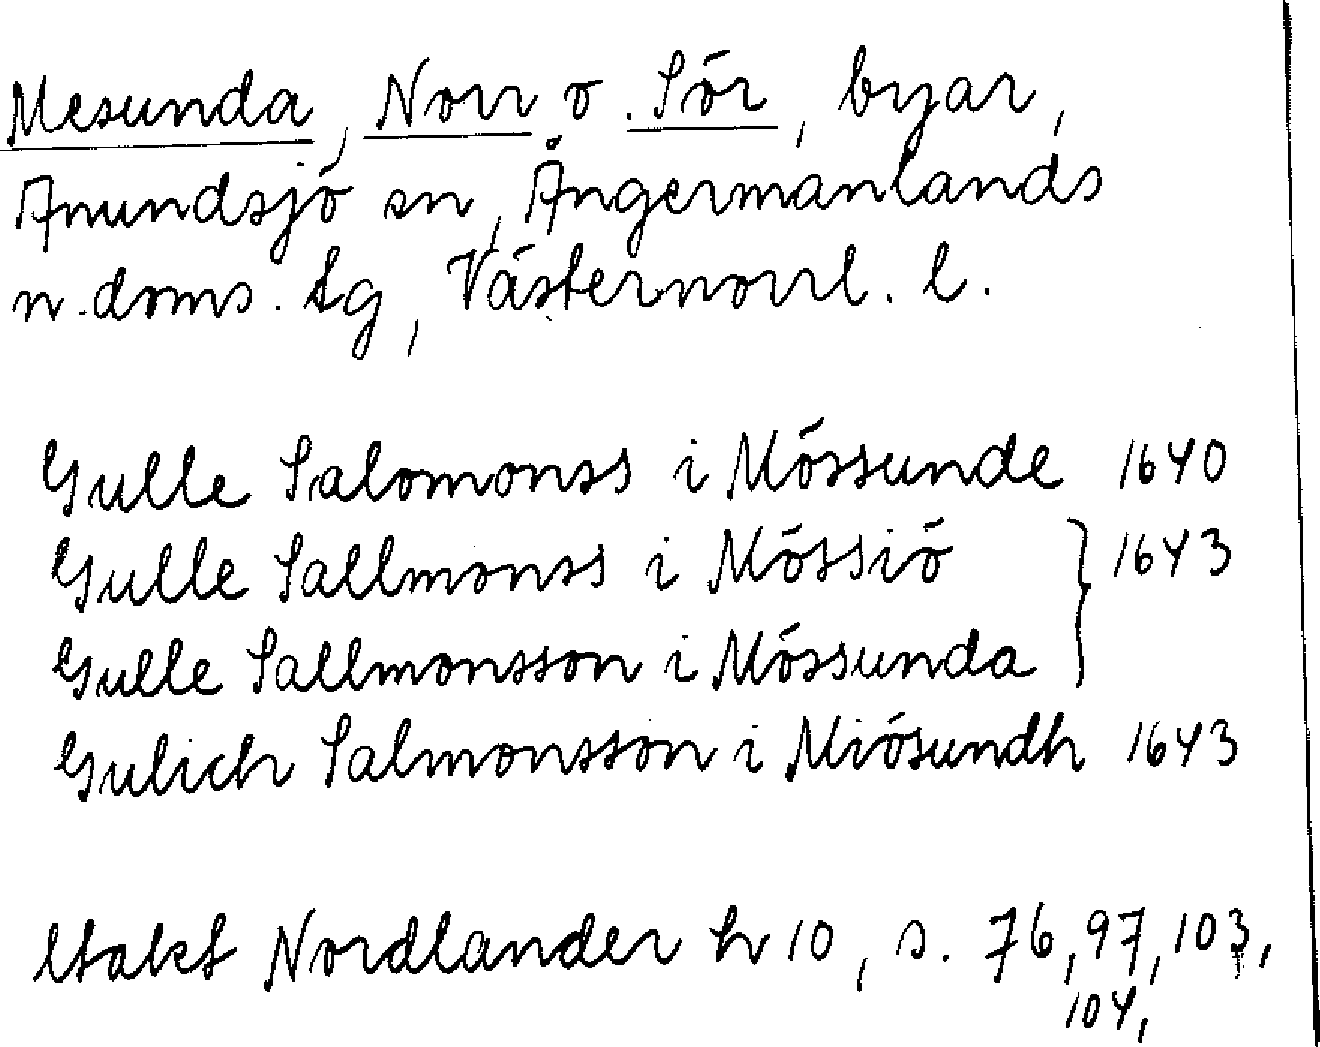 Mesunda, Norr o. Sör, byar,
Anundsjö sn, Ångermanlands
n. doms. tg, Västernorrl. l.
Gulle Salomonss i Mössunde 1640
Gulle Sallmonss i Mössiö } 1643
Gulle Sallmonsson i Mössunda
Gulich Salmonsson i Miösundh 1643
Utakt Nordlander h 10, s. 76, 97, 103,
104,